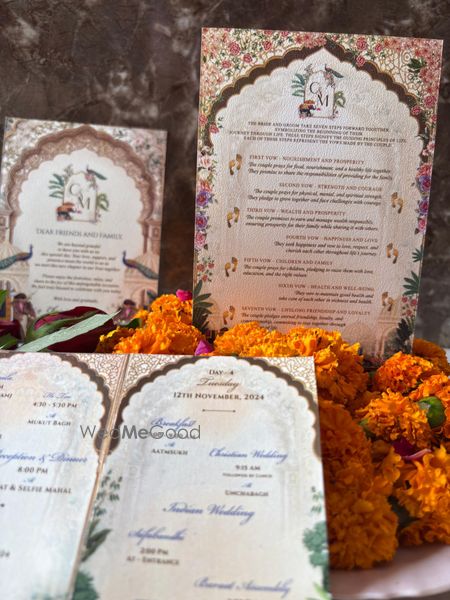 C
M
THE BRIDE AND GROOM TAKE SEVEN STEPS FORWARD TOGETHER,
SYMBOLIZING THE BEGINNING OF THEIR
JOURNEY THROUGH LIFE. THESE STEPS SIGNIFY THE GUIDING PRINCIPLES OF LIFE.
EACH OF THESE STEPS REPRESENT THE VOWS MADE BY THE COUPLE
FIRST VOW - NOURISHMENT AND PROSPERITY
The couple prays for food, nourishment, and a healthy life together.
They promise to share the responsibilities of providing for the family.
SECOND VOW - STRENGTH AND COURAGE
The couple prays for physical, mental, and spiritual strength.
They pledge to grow together and face challenges with courage.
THIRD VOW - WEALTH AND PROSPERITY
The couple promises to earn and manage wealth responsibly,
ensuring prosperity for their family while sharing it with others.
FOURTH VOW - HAPPINESS AND LOVE
They seek happiness and vow to love, respect, and
cherish each other throughout their life's journey.
FIFTH VOW - CHILDREN AND FAMILY
The couple prays for children, pledging to raise them with love,
education, and the right values.
SIXTH VOW - HEALTH AND WELLNESS
They vow to maintain good health and
take care of each other in sickness and health.
SEVENTH VOW - LIFELONG FRIENDSHIP AND LOYALTY
The couple pledges eternal friendship, loyalty, and
C
M
DEAR FRIENDS AND FAMILY,
We are beyond grateful
to share our love with you on
With love and gratitude
4:30 - 5:30 PM
A
MUKUT BAGH
Reception & Dinner
8:00 PM
A
& SELFIE MAHAL
DAY-4
Tuesday
12TH NOVEMBER, 2024
Breakfast
A
AATMSUKH
Christian Wedding
9:15 AM
FOLLOWED BY LUNCH
A
UNCHABAGH
Indian Wedding
Safabandhi
2:00 PM
AT - ENTRANCE
Baraat Assembly
WedMeGood